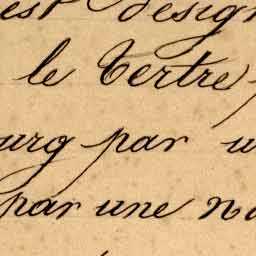 est désign
le Tertre
urg par u
par une no